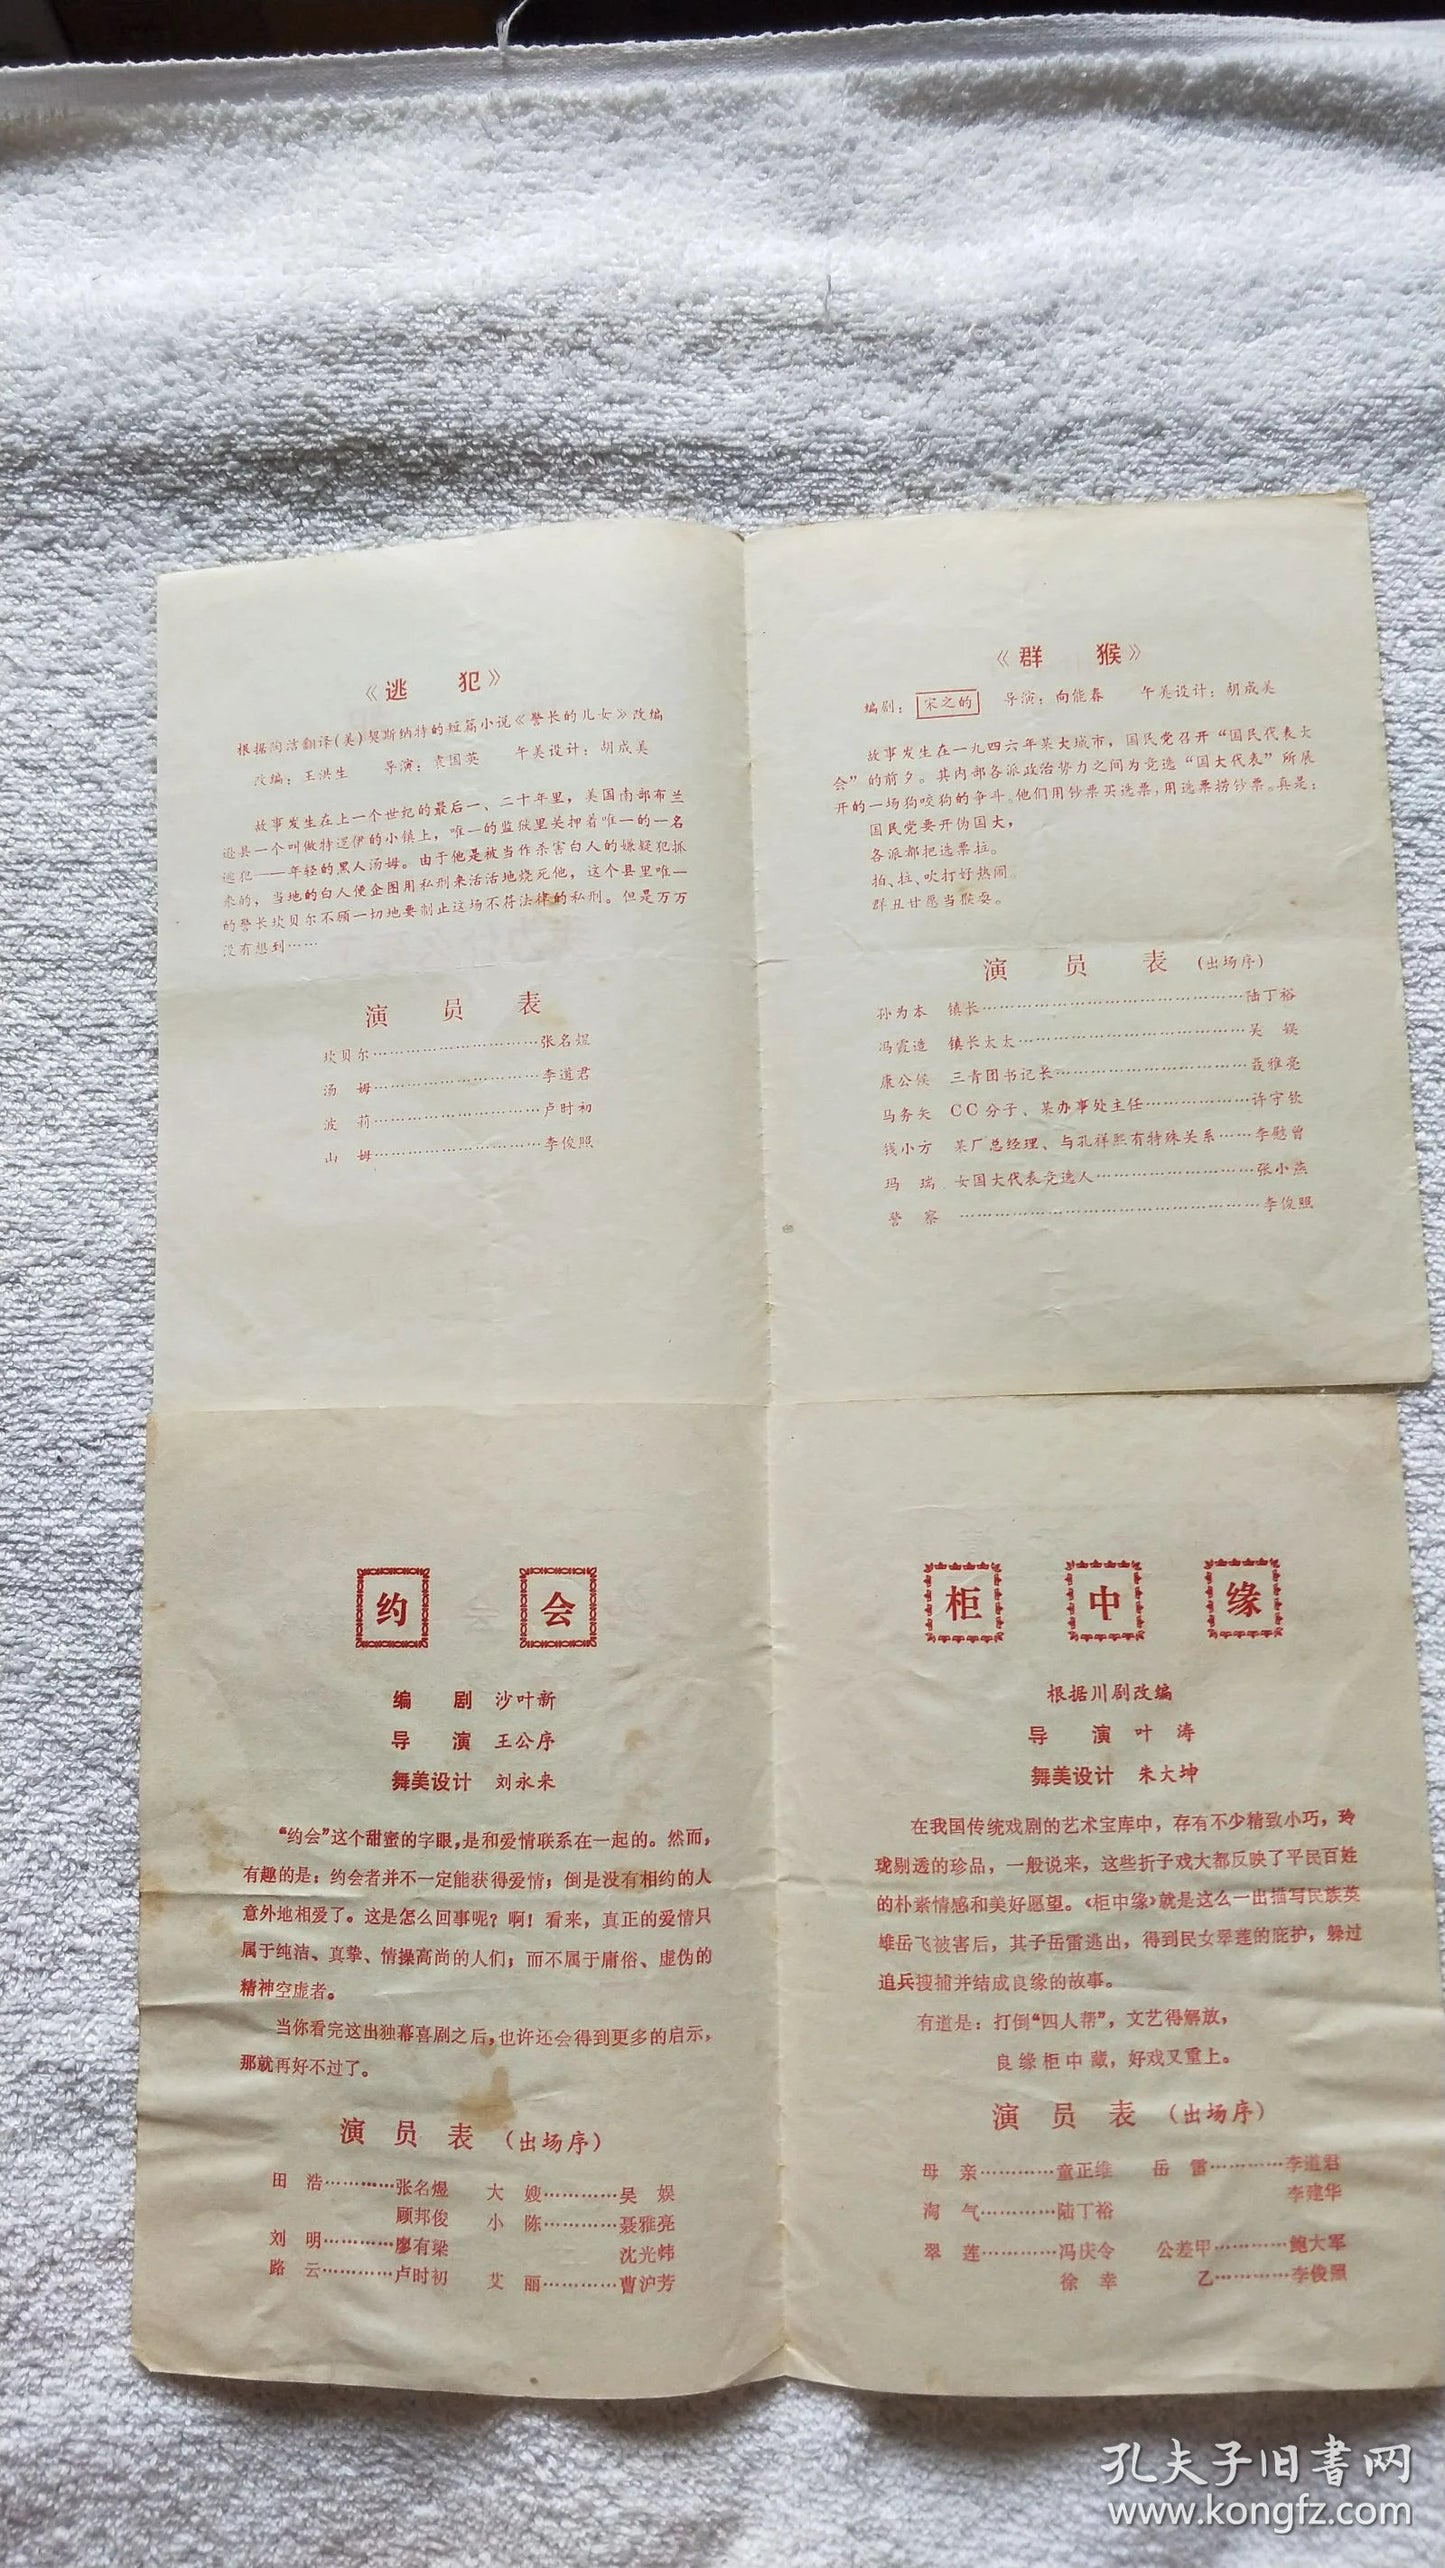 《逃　犯》
根据陶洁翻译(美)契斯纳特的短篇小说《警长的儿女》改编
改编：王洪生　导演：袁国英　午美设计：胡成美
故事发生在上一个世纪的最后一、二十年里，美国南部布兰
逊县一个叫做特逻伊的小镇上，唯一的监狱里关押着唯一的一名
逃犯——年轻的黑人汤姆。由于他是被当作杀害白人的嫌疑犯抓
来的，当地的白人便企图用私刑来活活地烧死他，这个县里唯一
的警长坎贝尔不顾一切地要制止这场不符法律的私刑。但是万万
没有想到……
演　员　表
坎贝尔…………………………张名煜
汤　姆…………………………李道君
波　莉…………………………卢时初
山　姆…………………………李俊照
《群　猴》
编剧：宋之的　导演：向能春　午美设计：胡成美
故事发生在一九四六年某大城市，国民党召开“国民代表大
会”的前夕。其内部各派政治势力之间为竞选“国大代表”所展
开的一场狗咬狗的争斗。他们用钞票买选票，用选票捞钞票。真是：
国民党要开伪国大，
各派都把选票拉。
拍、拉、吹打好热闹。
群丑甘愿当猴耍。
演　员　表（出场序）
孙为本　镇长…………………………陆丁裕
冯霞造　镇长太太…………………………吴　娱
康公候　三青团书记长…………………………聂雅亮
马务矢　CC分子、某办事处主任………………许守钦
钱小方　某厂总经理、与孔祥熙有特殊关系……李慰曾
玛　瑙　女国大代表竞选人…………………………张小燕
警　察　…………………………李俊照
约会
编　剧　沙叶新
导　演　王公序
舞美设计　刘永来
“约会”这个甜蜜的字眼，是和爱情联系在一起的。然而，
有趣的是：约会者并不一定能获得爱情；倒是没有相约的人
意外地相爱了。这是怎么回事呢？啊！看来，真正的爱情只
属于纯洁、真挚、情操高尚的人们；而不属于庸俗、虚伪的
精神空虚者。
当你看完这出独幕喜剧之后，也许还会得到更多的启示，
那就再好不过了。
演　员　表（出场序）
田　浩…………张名煜　大　嫂…………吴　娱
顾邦俊　小　陈…………聂雅亮
刘　明…………廖有梁　沈光炜
路　云…………卢时初　艾　丽…………曹沪芳
柜中缘
根据川剧改编
导　演　叶　涛
舞美设计　朱大坤
在我国传统戏剧的艺术宝库中，存有不少精致小巧，玲
珑剔透的珍品，一般说来，这些折子戏大都反映了平民百姓
的朴素情感和美好愿望。《柜中缘》就是这么一出描写民族英
雄岳飞被害后，其子岳雷逃出，得到民女翠莲的庇护，躲过
追兵搜捕并结成良缘的故事。
有道是：打倒“四人帮”，文艺得解放，
良缘柜中藏，好戏又重上。
演　员　表（出场序）
母　亲…………童正维　岳　雷…………李道君
李建华
淘　气…………陆丁裕
翠　莲…………冯庆令　公差甲…………鲍大军
徐　幸　乙…………李俊照
孔夫子旧书网
www.kongfz.com